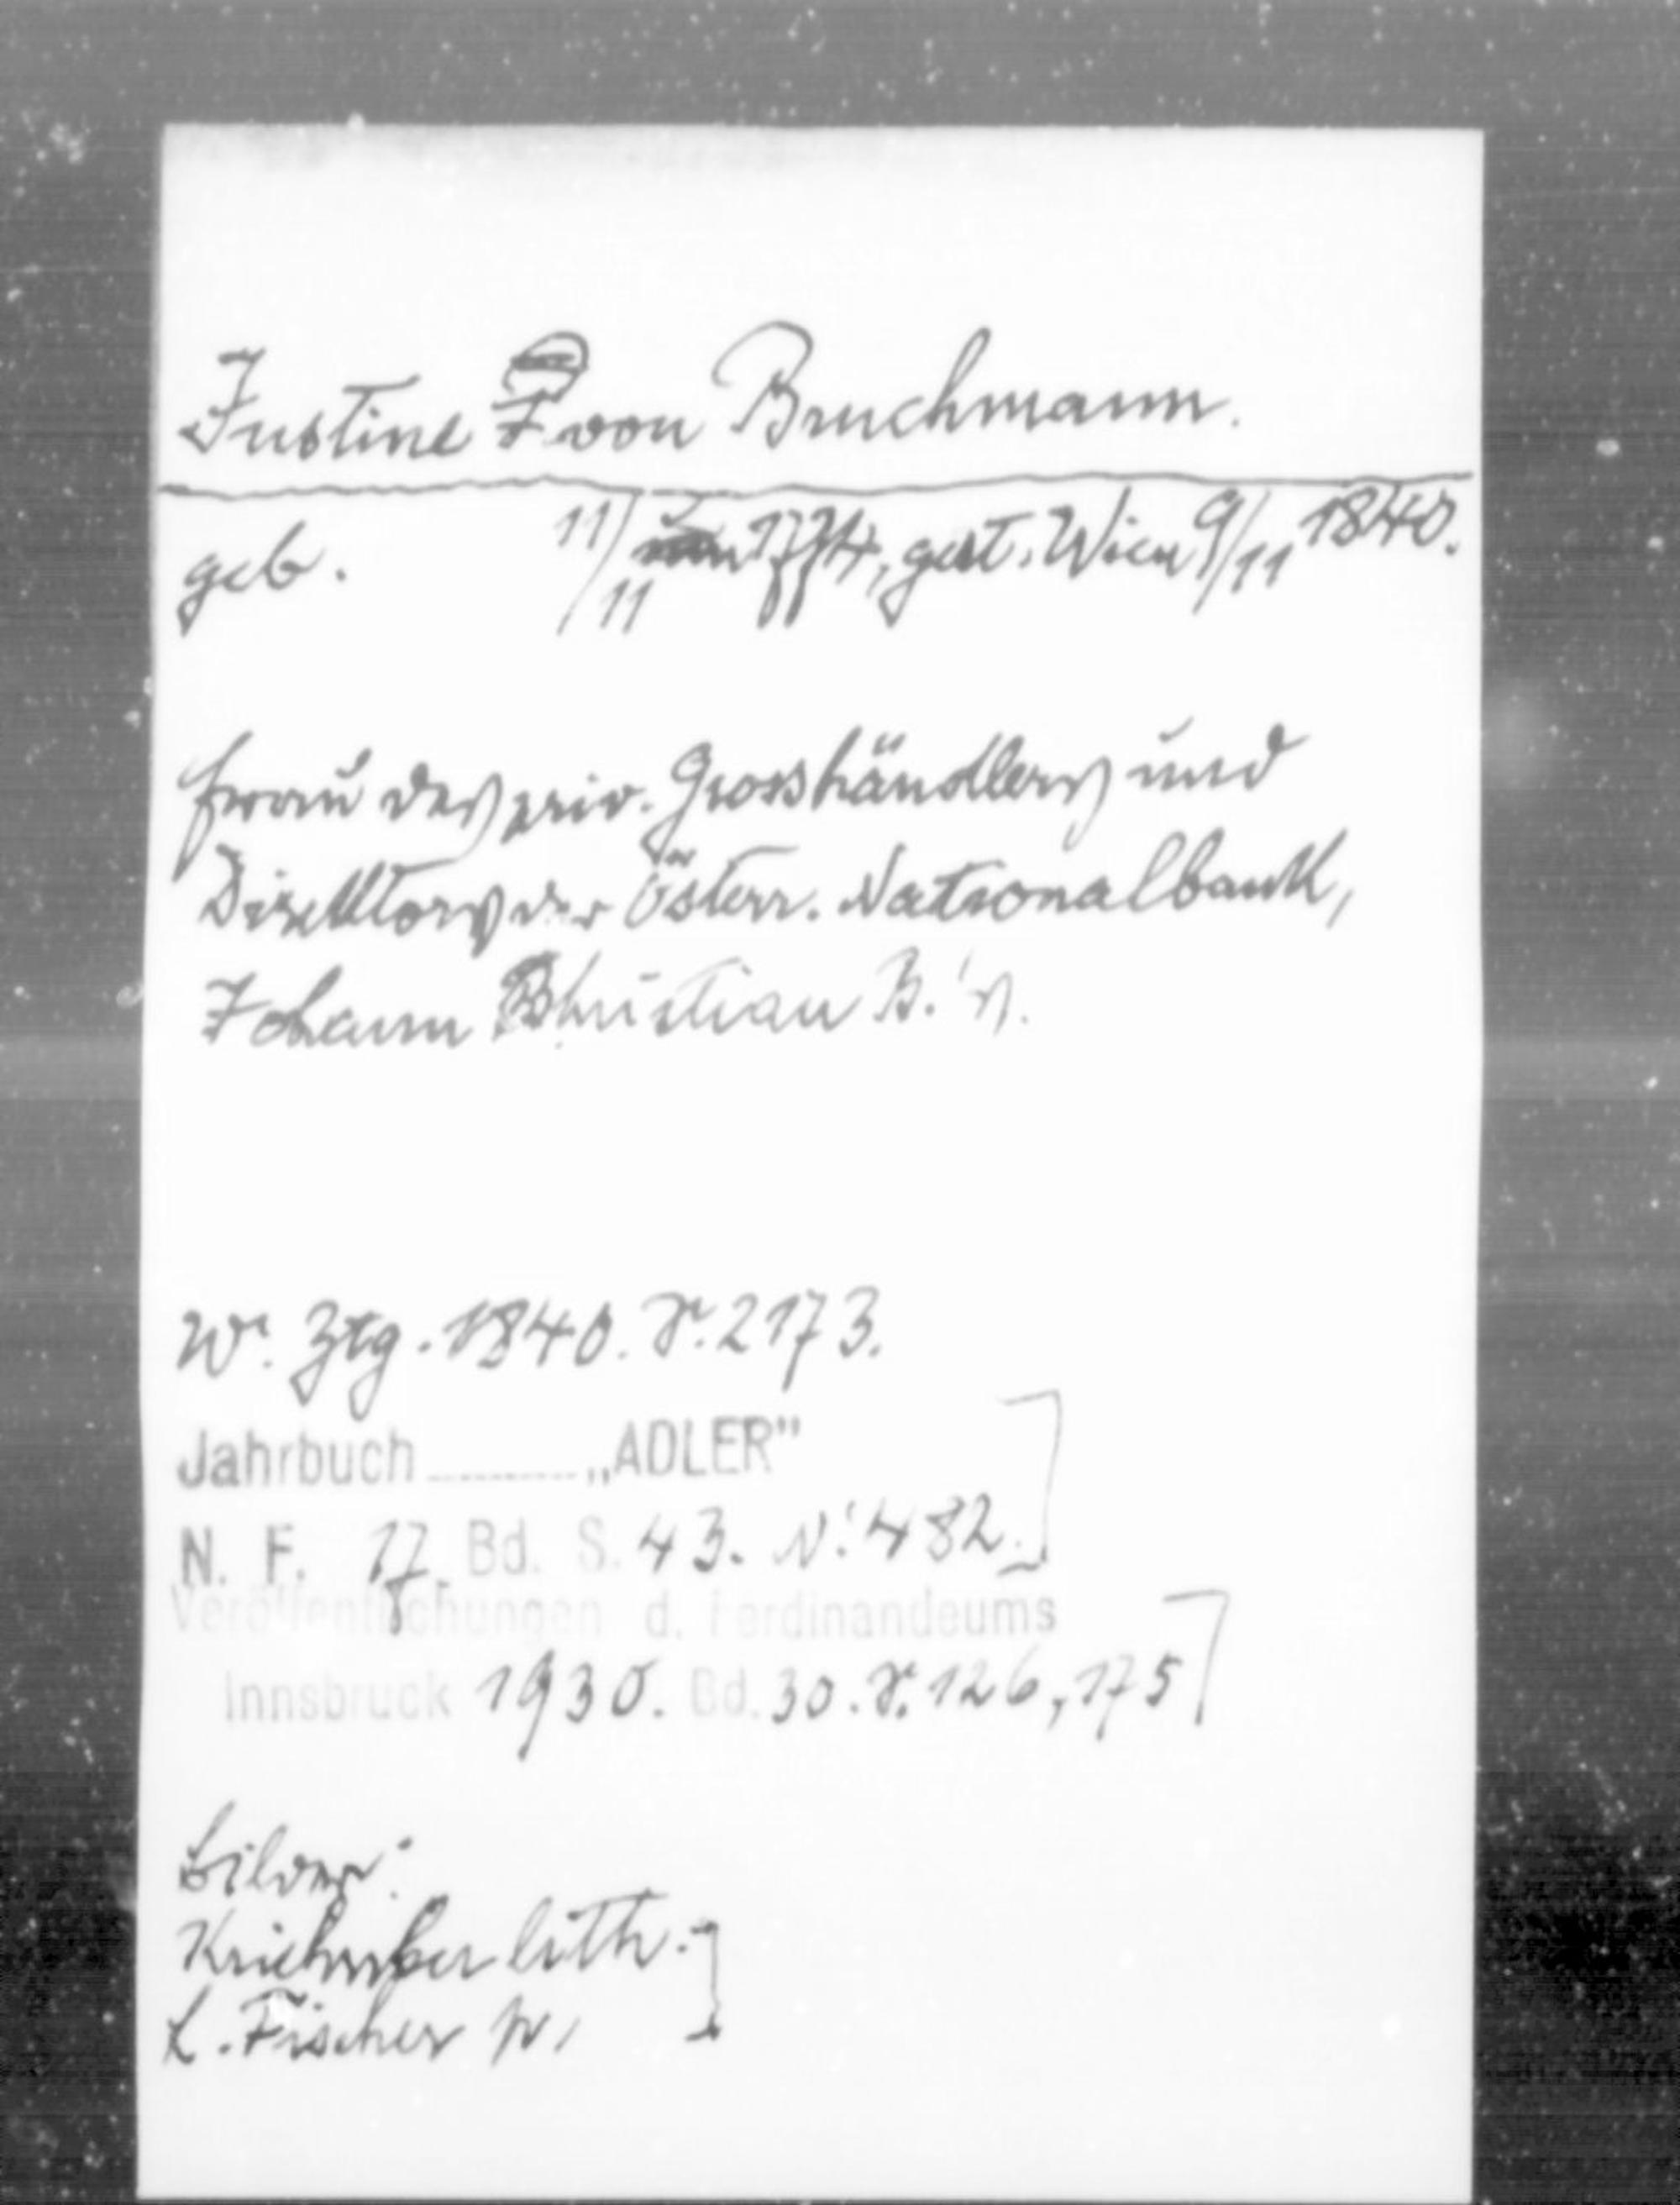 Justine von Bruchmann.
geb. 11/11 1774, gest. Wien 9/11 1840.
Frau des priv. Grosshändlers und
Direktors der österr. Nationalbank,
Johann Christian B. 's.
Wr. Ztg. 1840. S. 2173.
Jahrbuch ........... „ADLER"
N. F. 17. Bd. S. 43. N: 482.
Veröffentlichungen d. Ferdinandeums
Innsbruck 1930. Bd. 30. S. 126, 175
Bilder:
Kriehuber lith.
L. Fischer p.